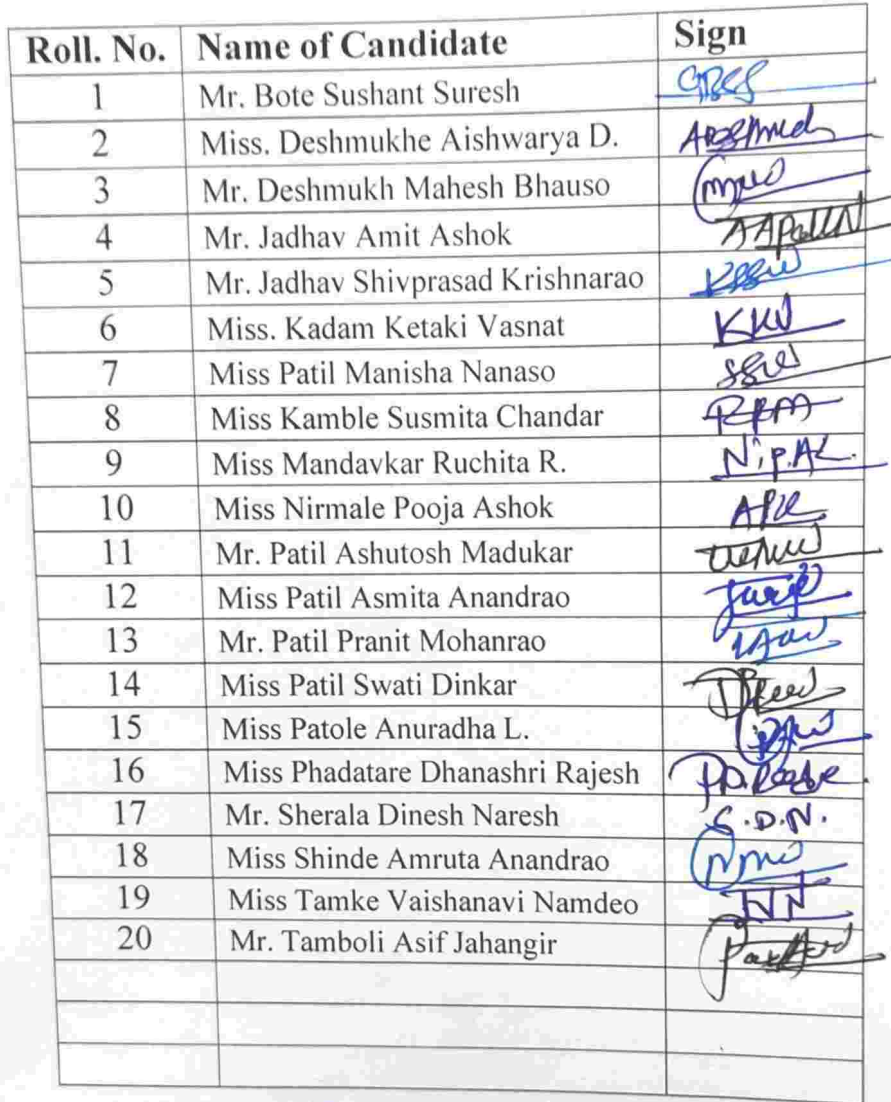 Roll. No. Name of Candidate Sign
1 Mr. Bote Sushant Suresh
2 Miss. Deshmukhe Aishwarya D.
3 Mr. Deshmukh Mahesh Bhauso
4 Mr. Jadhav Amit Ashok
5 Mr. Jadhav Shivprasad Krishnarao
6 Miss. Kadam Ketaki Vasnat KKV
7 Miss Patil Manisha Nanaso
8 Miss Kamble Susmita Chandar
9 Miss Mandavkar Ruchita R.
10 Miss Nirmale Pooja Ashok
11 Mr. Patil Ashutosh Madukar
12 Miss Patil Asmita Anandrao
13 Mr. Patil Pranit Mohanrao
14 Miss Patil Swati Dinkar
15 Miss Patole Anuradha L.
16 Miss Phadatare Dhanashri Rajesh
17 Mr. Sherala Dinesh Naresh S.D.N.
18 Miss Shinde Amruta Anandrao
19 Miss Tamke Vaishanavi Namdeo
20 Mr. Tamboli Asif Jahangir